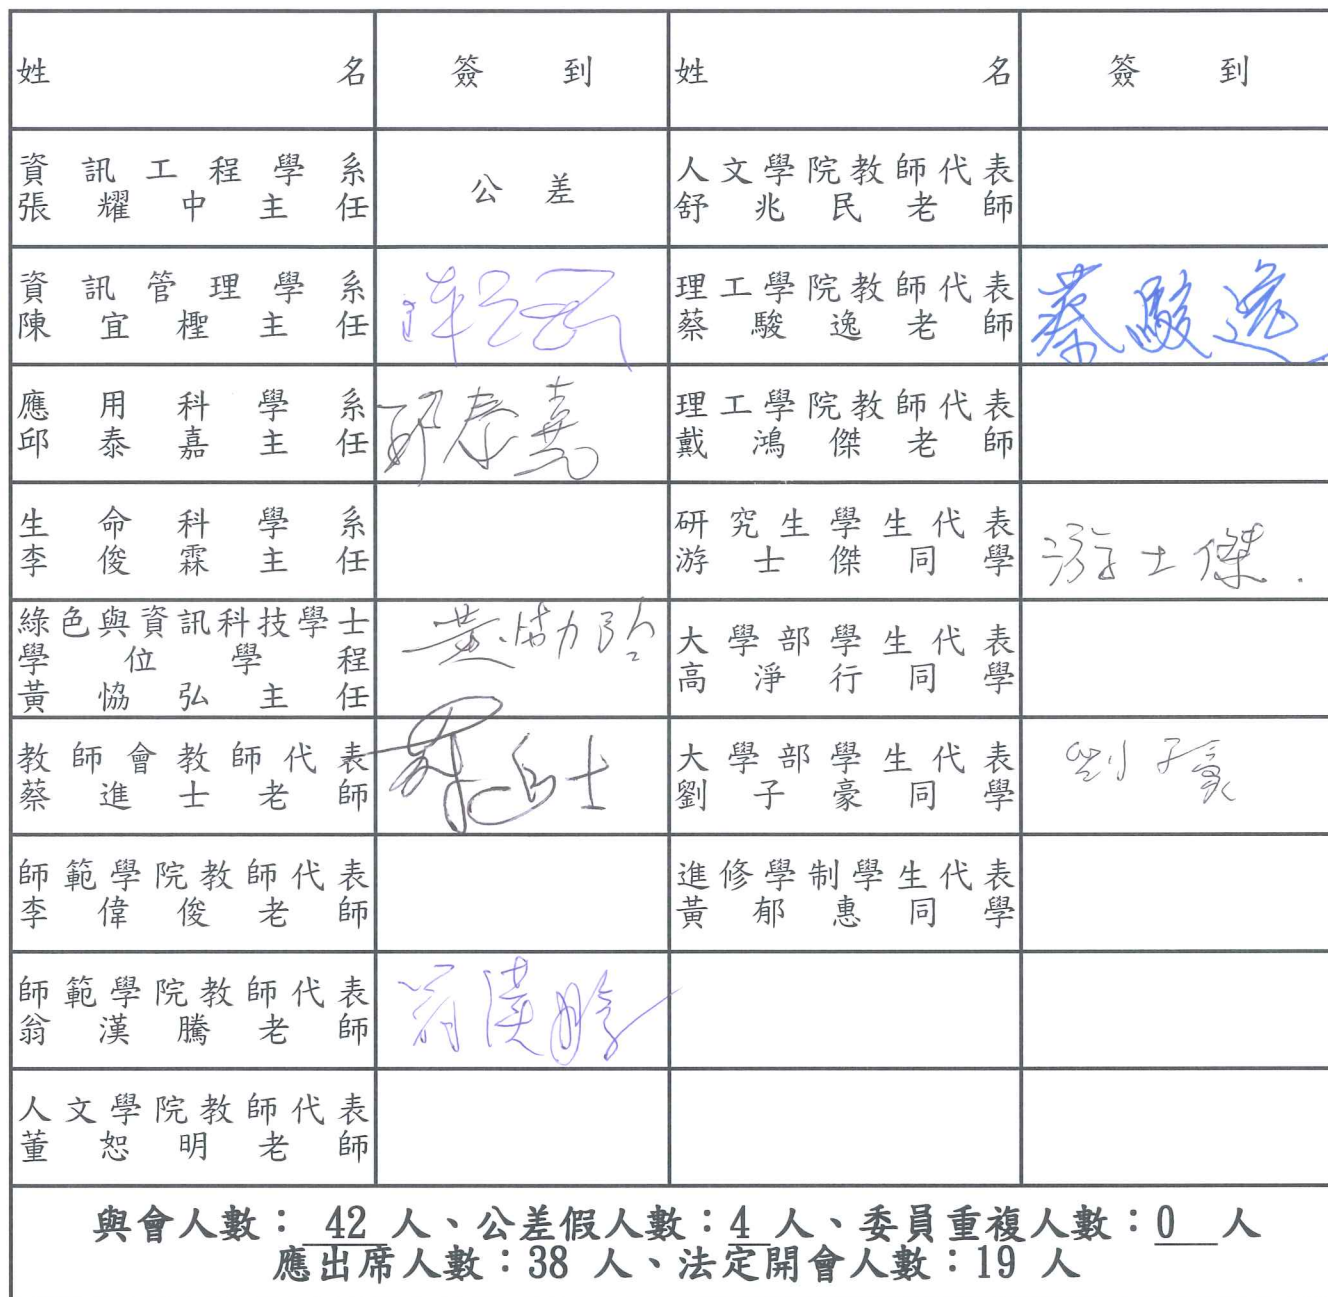 姓名 簽到 姓名 簽到
資訊工程學系
張耀中主任
公差
人文學院教師代表
舒兆民老師
資訊管理學系
陳宜檉主任
理工學院教師代表
蔡駿逸老師
蔡駿逸
應用科學系
邱泰嘉主任
邱泰嘉
理工學院教師代表
戴鴻傑老師
生命科學系
李俊霖主任
研究生學生代表
游士傑同學
游士傑.
綠色與資訊科技學士
學位學程
黃恊弘主任
黃恊弘
大學部學生代表
高淨行同學
教師會教師代表
蔡進士老師
蔡進士
大學部學生代表
劉子豪同學
劉子豪
師範學院教師代表
李偉俊老師
進修學制學生代表
黃郁惠同學
師範學院教師代表
翁漢騰老師
翁漢騰
人文學院教師代表
董恕明老師
與會人數：42人、公差假人數：4人、委員重複人數：0人
應出席人數：38人、法定開會人數：19人